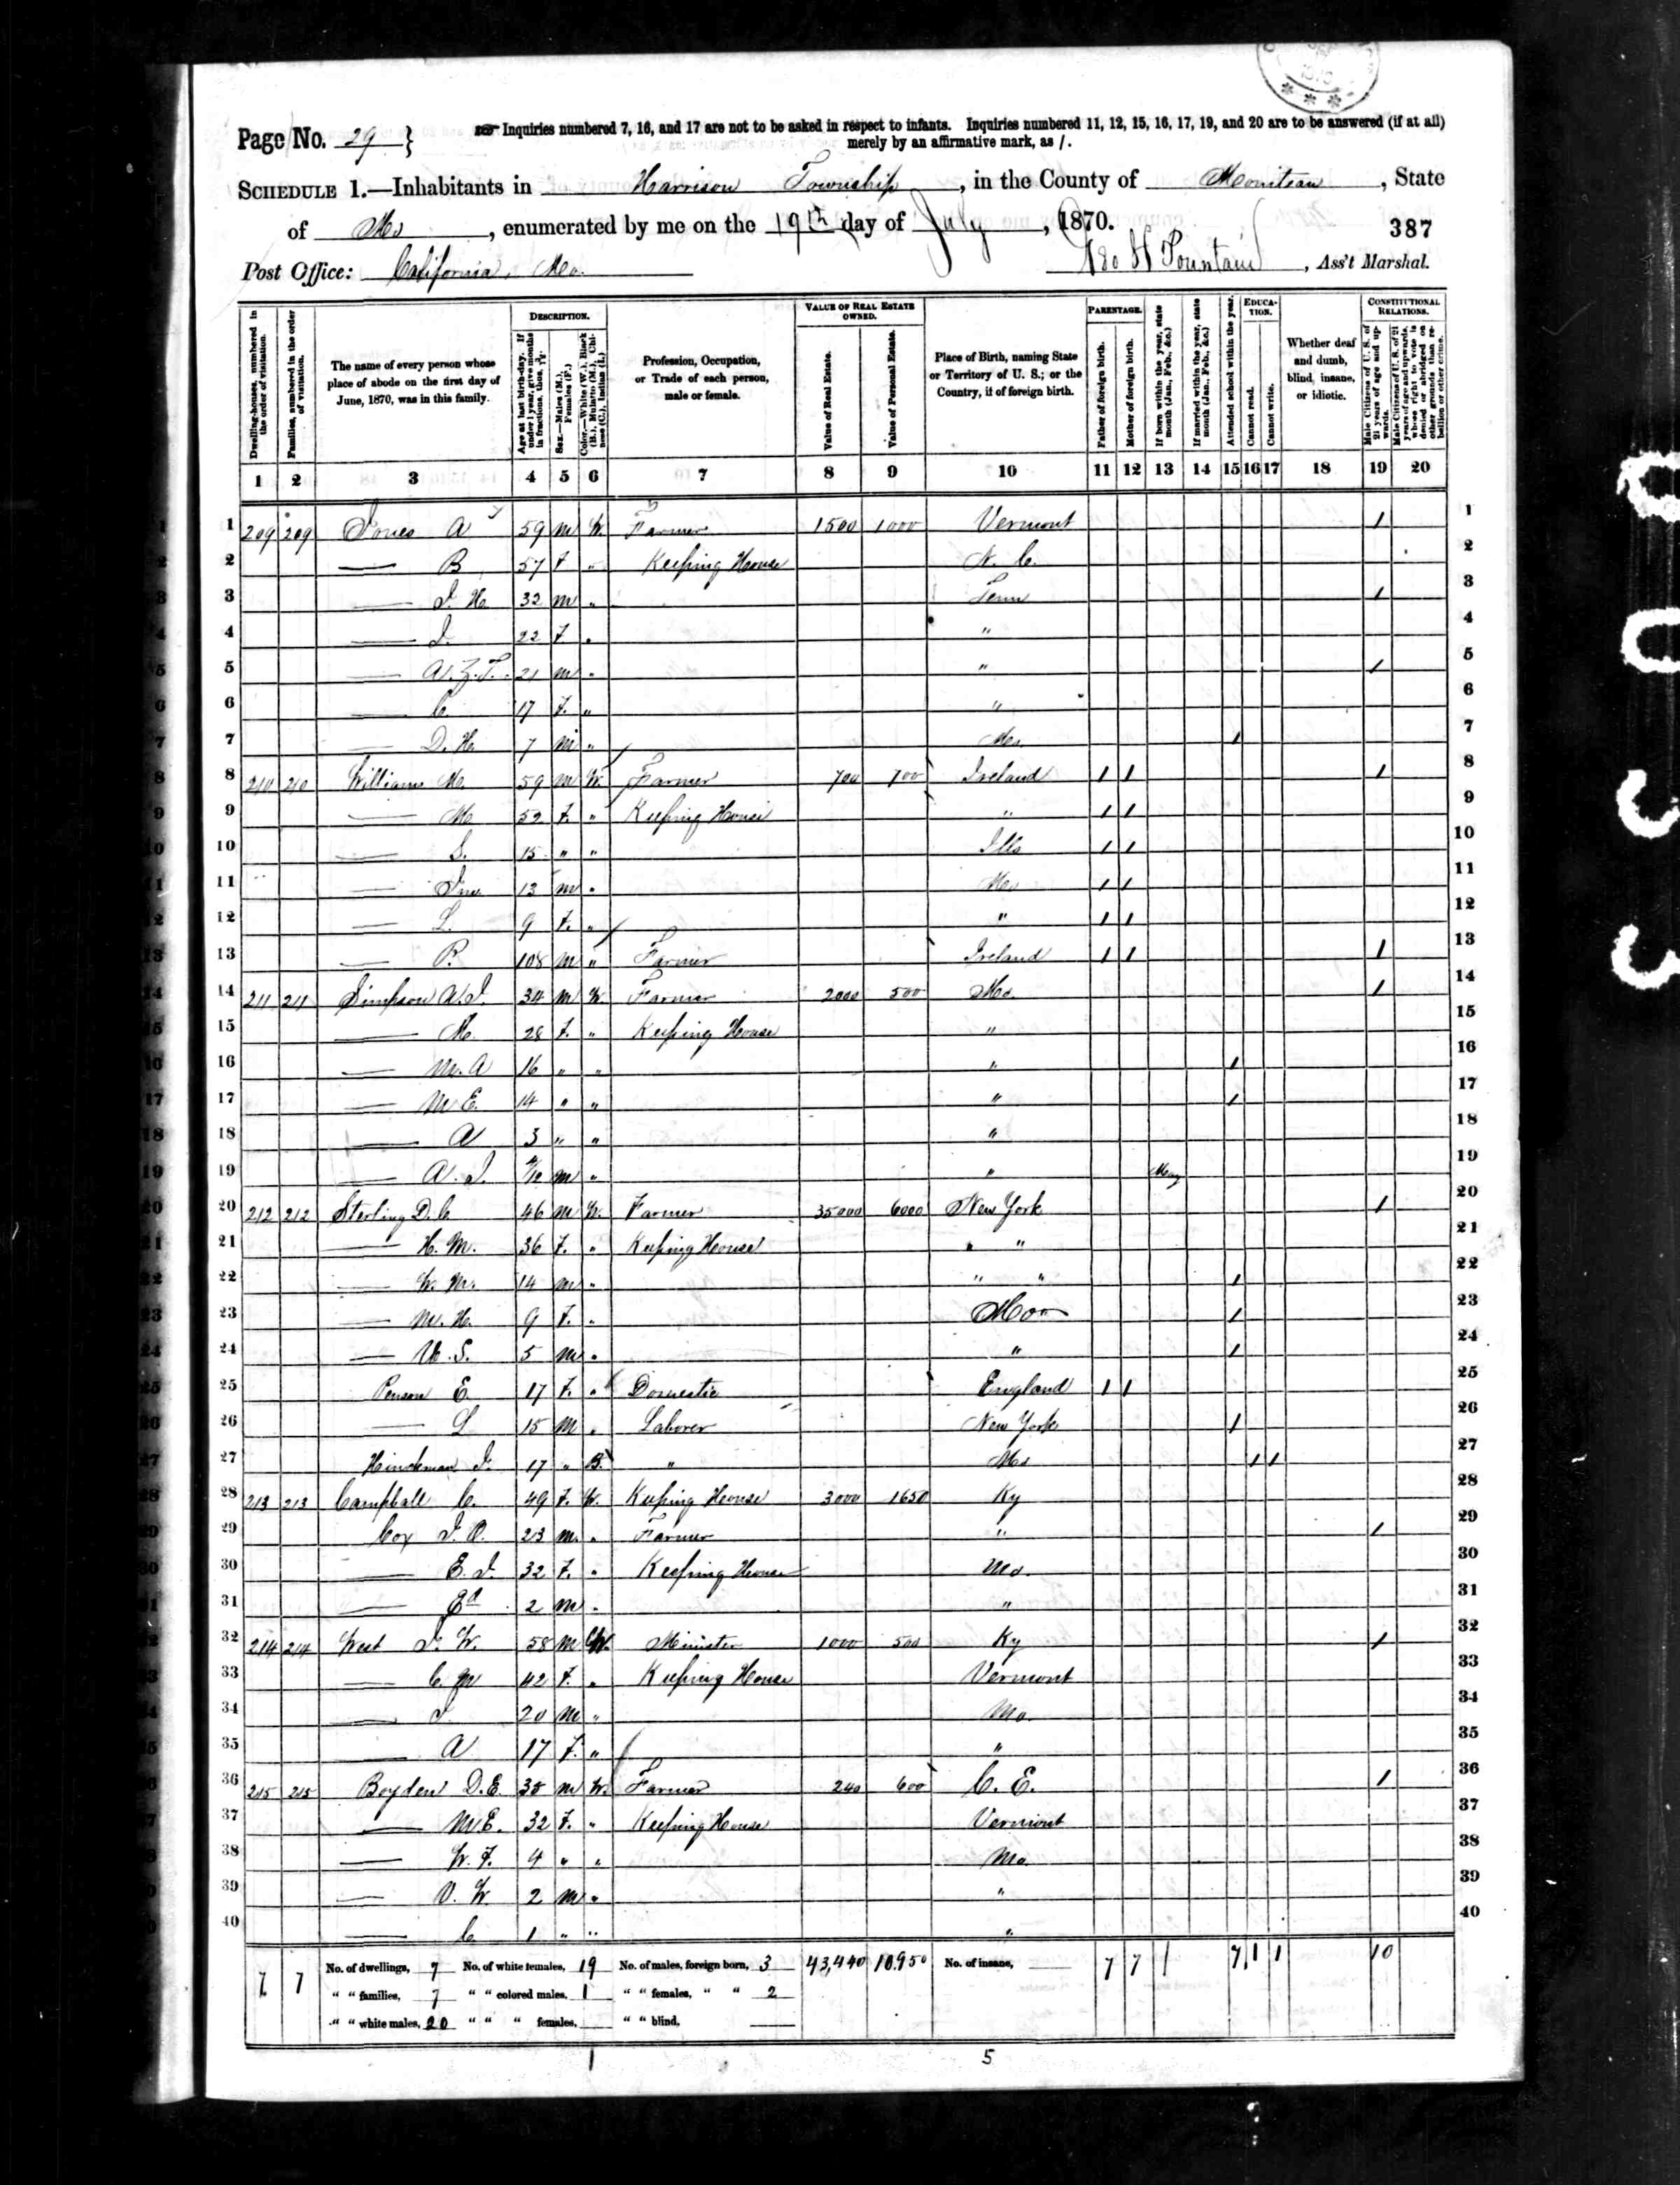 Page No. 29 }
Inquiries numbered 7, 16, and 17 are not to be asked in respect to infants. Inquiries numbered 11, 12, 15, 16, 17, 19, and 20 are to be answered (if at all)
merely by an affirmative mark, as /.
SCHEDULE 1.—Inhabitants in Harrison Township, in the County of Moniteau, State
of Mo, enumerated by me on the 19th day of July, 1870.
387
Post Office: California, Mo.
Geo H Fountain, Ass't Marshal.
Dwelling-houses, numbered in the order of visitation.
Families, numbered in the order of visitation.
The name of every person whose place of abode on the first day of June, 1870, was in this family.
DESCRIPTION.
Age at last birth-day. If under 1 year, give months in fractions, thus, 3/12.
Sex.—Males (M.), Females (F.)
Color.—White (W.), Black (B.), Mulatto (M.), Chinese (C.), Indian (I.)
Profession, Occupation, or Trade of each person, male or female.
VALUE OF REAL ESTATE OWNED.
Value of Real Estate.
Value of Personal Estate.
Place of Birth, naming State or Territory of U. S.; or the Country, if of foreign birth.
PARENTAGE.
Father of foreign birth.
Mother of foreign birth.
If born within the year, state month (Jan., Feb., &c.)
If married within the year, state month (Jan., Feb., &c.)
Attended school within the year.
EDUCATION.
Cannot read.
Cannot write.
Whether deaf and dumb, blind, insane, or idiotic.
CONSTITUTIONAL RELATIONS.
Male Citizens of U. S. of 21 years of age and upwards.
Male Citizens of U. S. of 21 years of age and upwards, whose right to vote is denied or abridged on other grounds than rebellion or other crime.
1 2 3 4 5 6 7 8 9 10 11 12 13 14 15 16 17 18 19 20
1 209 209 Jones A 59 m W. Farmer 1500 1000 Vermont / 1
2 — B 57 f " Keeping House N. C. 2
3 — J. H. 32 m " Tenn / 3
4 — J. 22 f " " 4
5 — A. Z. T. 21 m " " / 5
6 — C. 17 f. " " 6
7 — D. H. 7 m " Mo. / 7
8 210 210 Williams M. 59 m W. Farmer 700 700 Ireland / / / 8
9 — M 52 f. " Keeping House " / / 9
10 — S. 15 " " Ills / / 10
11 — Jno 13 m " Mo / / 11
12 — L. 9 f. " " / / 12
13 — P. 108 m " Farmer Ireland / / / 13
14 211 211 Simpson A. J. 34 m W. Farmer 2000 500 Mo. / 14
15 — M. 28 f. " Keeping House " 15
16 — M. A 16 " " " / 16
17 — M. E. 14 " " " / 17
18 — A 3 " " " 18
19 — A. J. m " " May 19
20 212 212 Sterling D. C 46 m W. Farmer 35000 6000 New York / 20
21 — H. M. 36 f. " Keeping House " " 21
22 — W. M. 14 m " " " / 22
23 — M. H. 9 f. " Mo / 23
24 — U. S. 5 m " " / 24
25 Penson E. 17 f. " Domestic England / / 25
26 — L 15 m " Laborer New York / 26
27 Hinckman J. 17 " B. " Mo / / 27
28 213 213 Campball C. 49 f. W. Keeping House 3000 1650 Ky 28
29 Cox J. O. 23 m. " Farmer " / 29
30 — E. J. 32 f. " Keeping House Mo. 30
31 — Ed 2 m " " 31
32 214 214 West J. W. 58 m W. Minister 1000 500 Ky / 32
33 — C. M 42 f. " Keeping House Vermont 33
34 — J 20 m " Mo. 34
35 — A 17 f. " " 35
36 215 215 Boyden D. E. 35 m W. Farmer 240 600 C. E. / 36
37 — M. E. 32 f. " Keeping House Vermont 37
38 — W. F. 4 " " Mo. 38
39 — O. W. 2 m " " 39
40 — C. 1 " " " 40
7 7 No. of dwellings, 7 No. of white females, 19 No. of males, foreign born, 3 43,440 10,950 No. of insane, 7 7 1 7 1 1 10
" " families, 7 " " colored males, 1 " " females, " " 2
" " white males, 20 " " " females, " " blind,
5